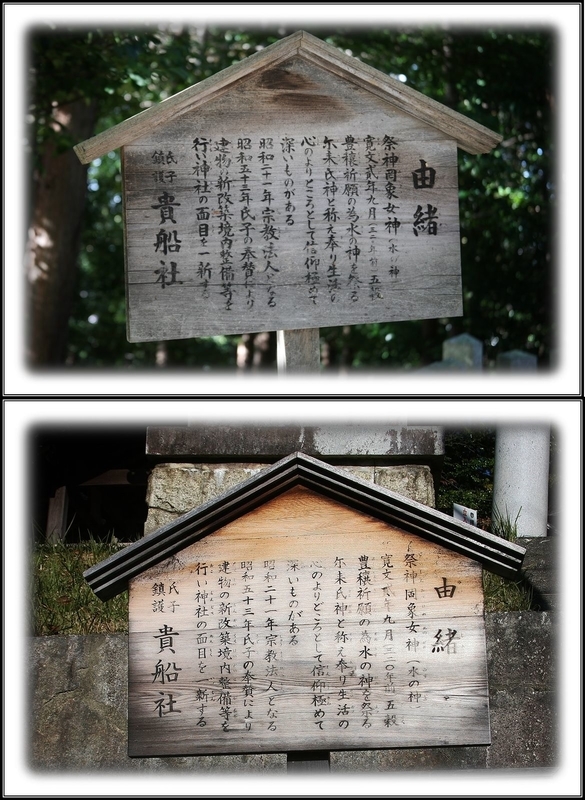 由緒
祭神罔象女神（水の神
寛文弐年九月 五穀
豊穣祈願の為水の神を祭る
尓来氏神と称え奉り生活の
心のよりどころとして信仰極めて
深いものがある
昭和二十一年宗教法人となる
昭和五十三年氏子の奉賛により
建物の新改築境内整備等を
行い神社の面目を一新する
氏子
鎮護
貴船社
由緒
祭神罔象女神（水の神
寛文 年九月 年前 五穀
豊穣祈願の為水の神を祭る
尓来氏神と称え奉り生活の
心のよりどころとして信仰極めて
深いものがある
昭和二十一年宗教法人となる
昭和五十三年氏子の奉賛により
建物の新改築境内整備等を
行い神社の面目を一新する
氏子
鎮護
貴船社